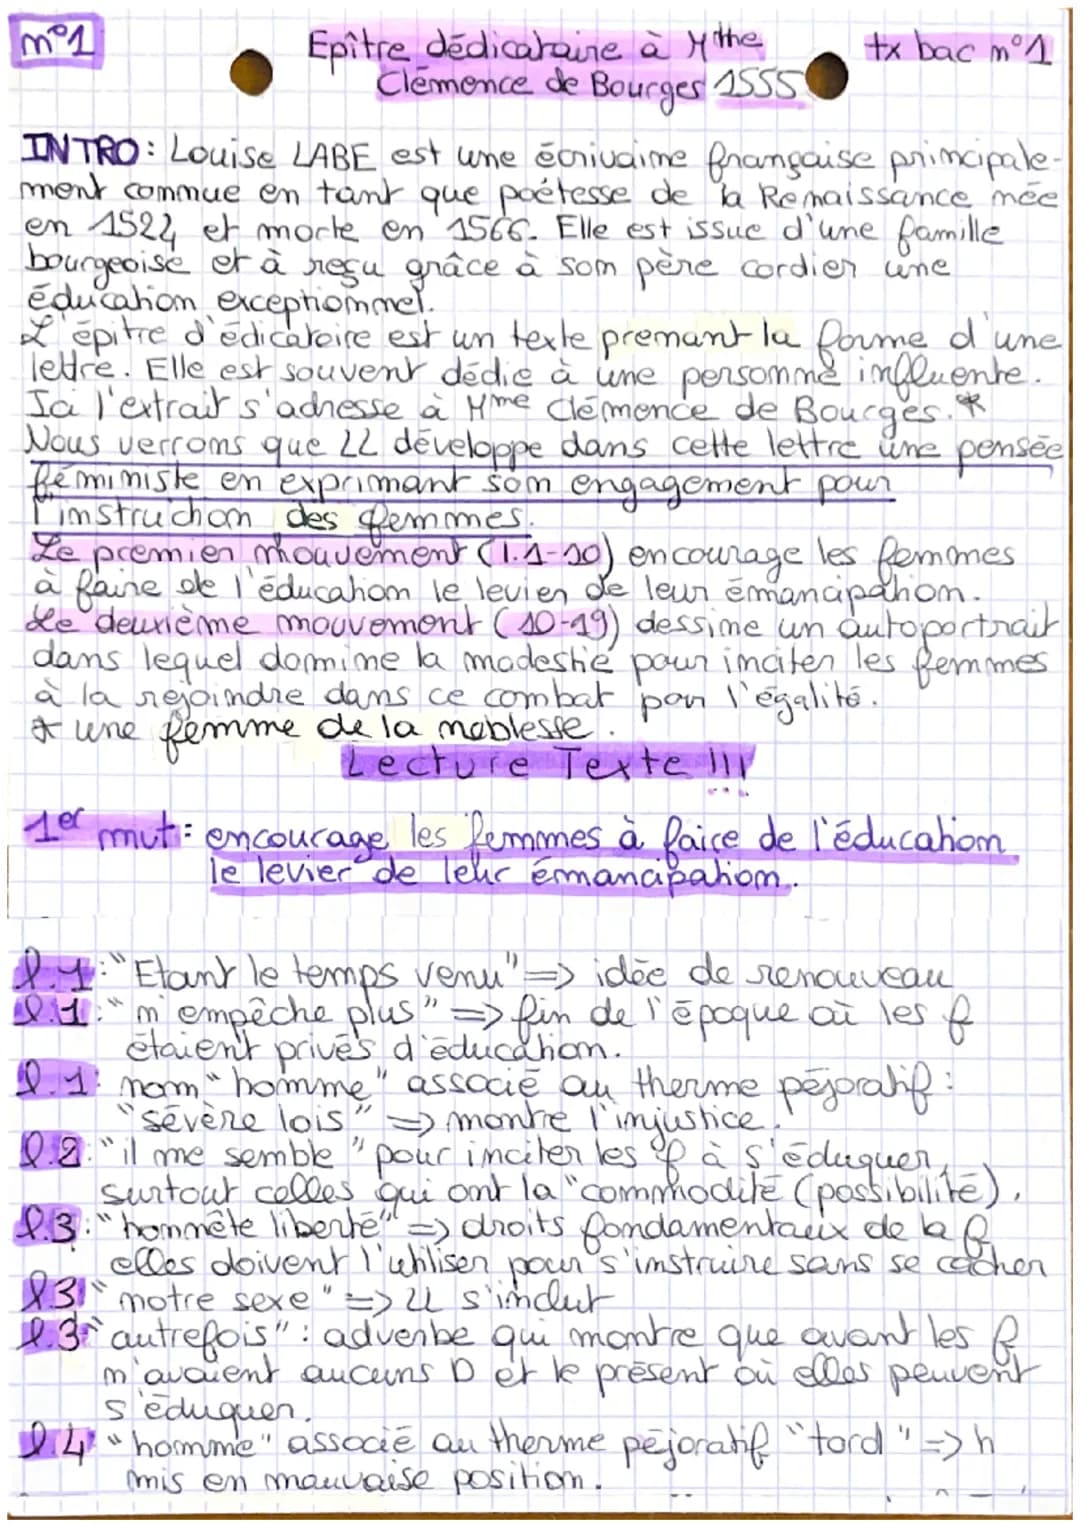 n°1
Epître dédicataire à Mthe
tx bac n°1
Clémence de Bourges 1555
INTRO: Louise LABE est une écrivaine française principale-
ment connue en tant que poétesse de la Renaissance née
en 1524 et morte en 1566. Elle est issue d'une famille
bourgeoise et à reçu grâce à son père cordier une
éducation exceptionnel.
L'épitre d'édicatoire est un texte prenant la forme d'une
lettre. Elle est souvent dédié à une personne influente.
Ici l'extrait s'adresse à Mme Clémence de Bourges.*
Nous verrons que LL développe dans cette lettre une pensée
féministe en exprimant son engagement pour
l'instruction des femmes.
Le premier mouvement (l.1-10) encourage les femmes
à faire de l'éducation le levier de leur émancipation.
Le deuxième mouvement (10-19) dessine un autoportrait
dans lequel domine la modestie pour inciter les femmes
à la rejoindre dans ce combat pour l'égalité.
* une femme de la noblesse.
Lecture Texte !!!
1er mvt: encourage les femmes à faire de l'éducation
le levier de leur émancipation.
l.1: "Etant le temps venu" => idée de renouveau
l.1: "n'empêche plus" => fin de l'époque où les f
étaient privés d'éducation.
l.1: nom "homme" associé au therme péjoratif:
"sévère lois" => montre l'injustice.
l.2: "il me semble" pour inciter les f à s'éduquer,
surtout celles qui ont la "commodité (possibilité).
l.3: "honnête liberté" => droits fondamentaux de la f
elles doivent l'utiliser pour s'instruire sans se cacher
l3 "notre sexe" => LL s'inclut
l.3 "autrefois": adverbe qui montre que avant les f
n'avaient aucuns D et le présent où elles peuvent
s'éduquer.
l.4 "homme" associé au therme péjoratif "tord" => h
mis en mauvaise position.